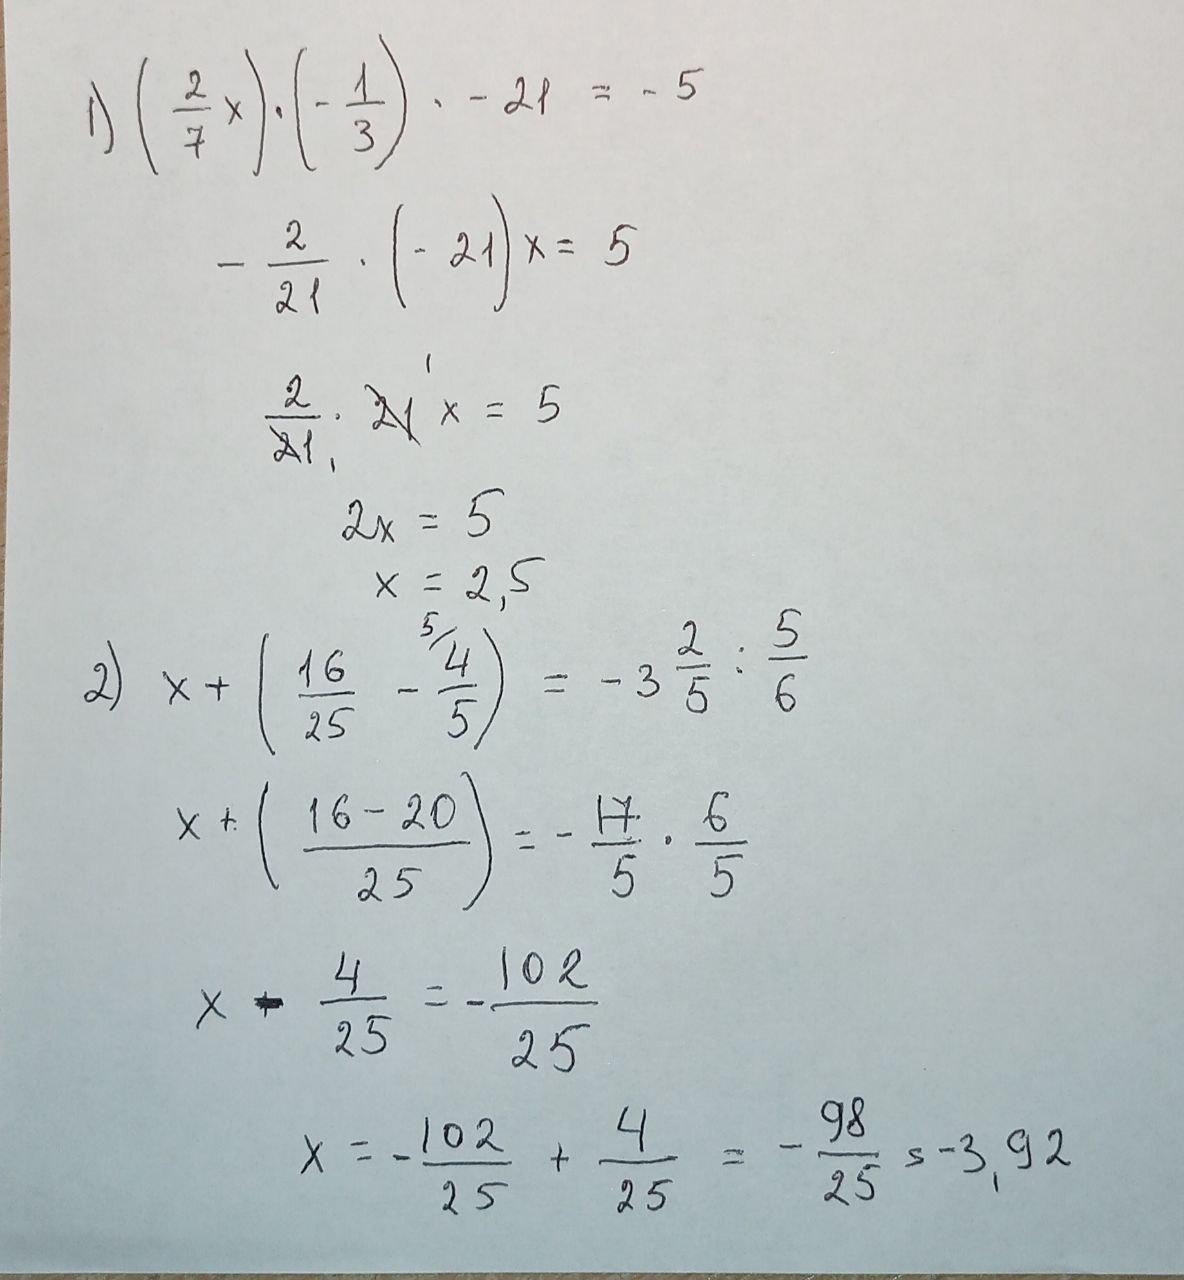 1) (2/7 x) · (- 1/3) · - 21 = - 5
- 2/21 · (- 21) x = 5
2/21 1 · 21 1 x = 5
2x = 5
x = 2,5
2) x + (16/25 - 5/ 4/5) = - 3 2/5 : 5/6
x + (16 - 20/25) = - 17/5 · 6/5
x - 4/25 = - 102/25
x = - 102/25 + 4/25 = - 98/25 = -3,92